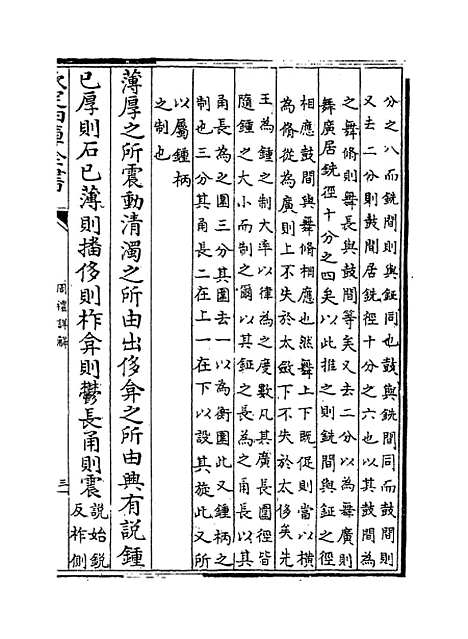 分之八而銑間則與鉦同也鼓與銑間同而鼓間則
又去二分則鼓間居銑徑十分之六也以其鼓間為
之舞脩則舞長與鼓間等矣又去二分以為舞廣則
舞廣居銑徑十分之四矣以此推之則銑間與鉦之徑
相應鼓間與舞脩相應也然舞上下既促則當以橫
為脩從為廣則上不失於太斂下不失於太侈矣先
王為鍾之制大率以律為之度數凡其廣長圍徑皆
隨鍾之大小而制之爾以其鉦之長為之甬長以其
甬長為之圍三分其圍去一以為衡圍此又鍾柄之
制也三分其甬長二在上一在下以設其旋此又所
以屬鍾柄
之制也
薄厚之所震動清濁之所由出侈弇之所由興有說鍾
已厚則石已薄則播侈則柞弇則鬱長甬則震說始銳
反柞側
欽定四庫全書
周禮詳解
三